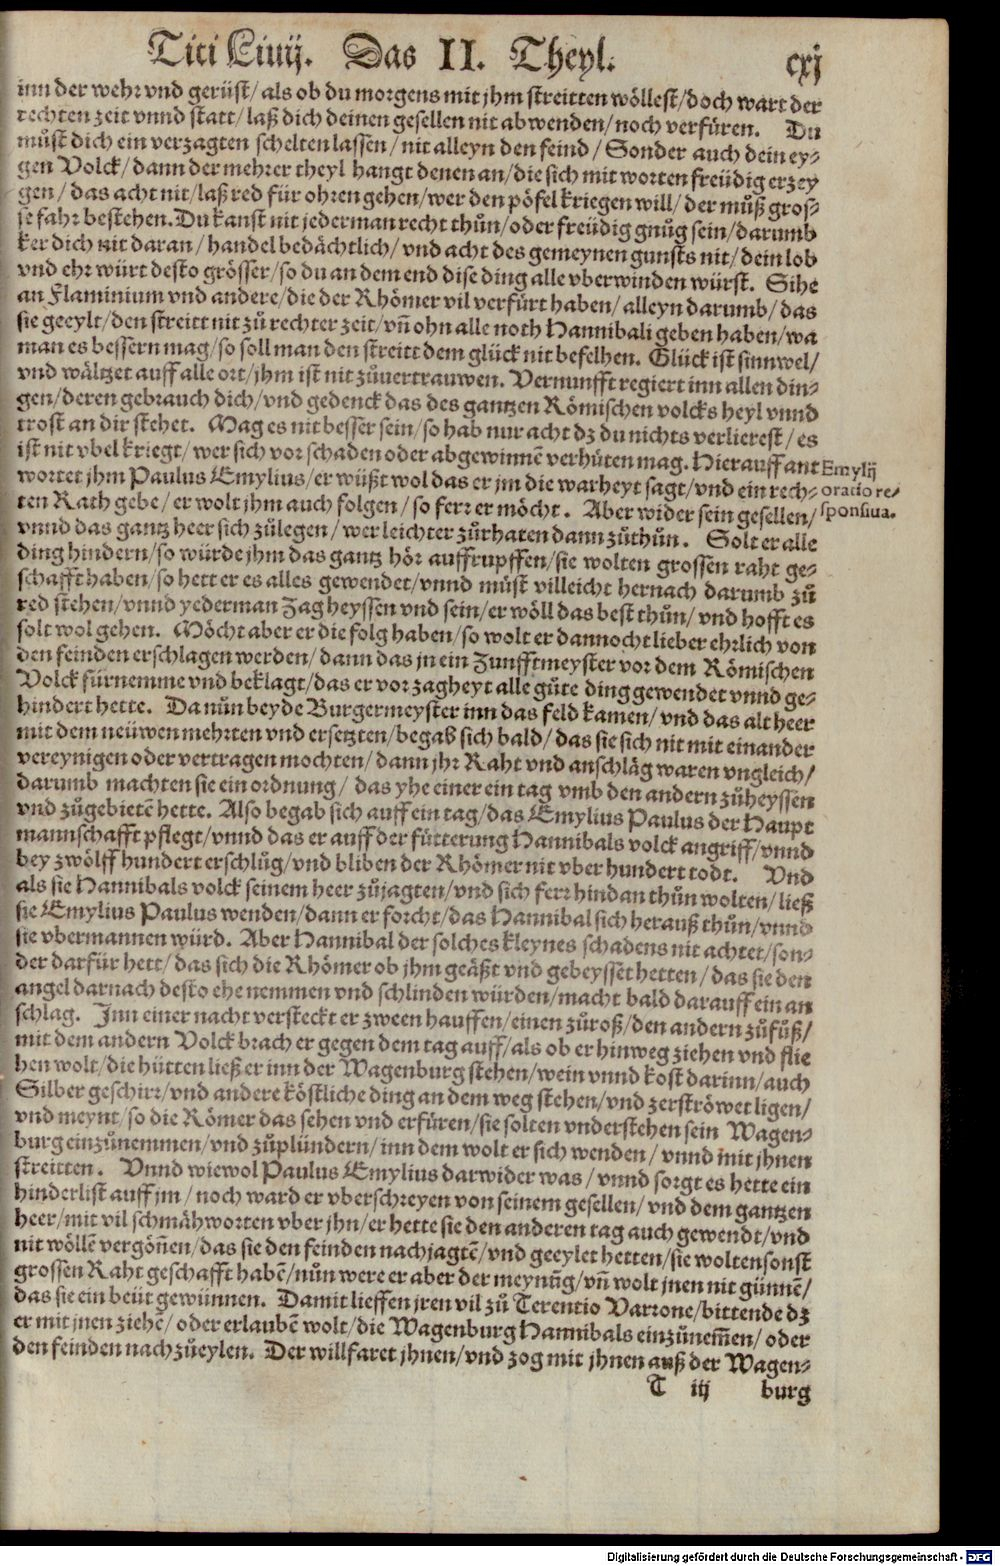 Titi Liuij. Das II. Theyl. cxj
inn der wehr vnd gerüst/ als ob du morgens mit jhm streitten wöllest/ doch wart der
rechten zeit vnnd statt/ laß dich deinen gesellen nit abwenden/ noch verfüren. Du
můst dich ein verzagten schelten lassen/ nit alleyn den feind/ Sonder auch dein ey⸗
gen Volck/ dann der mehrer theyl hangt denen an/ die sich mit worten freüdig erzey
gen/ das acht nit/ laß red für ohren gehen/ wer den pöfel kriegen will/ der můß gros⸗
se fahr bestehen. Du kanst nit jederman recht thůn/ oder freüdig gnůg sein/ darumb
ker dich nit daran/ handel bedächtlich/ vnd acht des gemeynen gunsts nit/ dein lob
vnd ehr würt desto grösser/ so du an dem end dise ding alle vberwinden würst. Sihe
an Flaminium vnd andere/ die der Rhömer vil verfürt haben/ alleyn darumb/ das
sie geeylt/ den streitt nit zů rechter zeit/ vñ ohn alle noth Hannibali geben haben/ wa
man es bessern mag/ so soll man den streitt dem glück nit befelhen. Glück ist sinnwel/
vnd wältzet auff alle ort/ jhm ist nit zůuertrauwen. Vernunfft regiert inn allen din⸗
gen/ deren gebrauch dich/ vnd gedenck das des gantzen Römischen volcks heyl vnnd
trost an dir stehet. Mag es nit besser sein/ so hab nur acht dz du nichts verlierest/ es
ist nit vbel kriegt/ wer sich vor schaden oder abgewinnē verhüten mag. Hierauff ant
wortet jhm Paulus Emylius/ er wüßt wol das er jm die warheyt sagt/ vnd ein rech⸗
ten Rath gebe/ er wolt jhm auch folgen/ so ferr er möcht. Aber wider sein gesellen/
vnnd das gantz heer sich zůlegen/ wer leichter zůrhaten dann zůthůn. Solt er alle
ding hindern/ so würde jhm das gantz hör auffrupffen/ sie wolten grossen raht ge⸗
schafft haben/ so hett er es alles gewendet/ vnnd můst villeicht hernach darumb zů
red stehen/ vnnd yederman Zag heyssen vnd sein/ er wöll das best thůn/ vnd hofft es
solt wol gehen. Möcht aber er die folg haben/ so wolt er dannocht lieber ehrlich von
den feinden erschlagen werden/ dann das jn ein Zunfftmeyster vor dem Römischen
Volck fürnemme vnd beklagt/ das er vor zagheyt alle gůte ding gewendet vnnd ge⸗
hindert hette. Da nůn beyde Burgermeyster inn das feld kamen/ vnd das alt heer
mit dem neüwen mehrten vnd ersetzten/ begab sich bald/ das sie sich nit mit einander
vereynigen oder vertragen mochten/ dann jhr Raht vnd anschläg waren vngleich/
darumb machten sie ein ordnung/ das yhe einer ein tag vmb den andern zůheyssen
vnd zůgebietē hette. Also begab sich auff ein tag/ das Emylius Paulus der Haupt
mannschafft pflegt/ vnnd das er auff der fütterung Hannibals volck angriff/ vnnd
bey zwölff hundert erschlůg/ vnd bliben der Rhömer nit vber hundert todt. Vnd
als sie Hannibals volck seinem heer zůjagten/ vnd sich ferr hindan thůn wolten/ ließ
sie Emylius Paulus wenden/ dann er forcht/ das Hannibal sich herauß thůn/ vnnd
sie vbermannen würd. Aber Hannibal der solches kleynes schadens nit achtet/ son⸗
der darfür hett/ das sich die Rhömer ob jhm geäßt vnd gebeysset hetten/ das sie den
angel darnach desto ehe nemmen vnd schlinden würden/ macht bald darauff ein an
schlag. Inn einer nacht versteckt er zween hauffen/ einen zůroß/ den andern zůfůß/
mit dem andern Volck brach er gegen dem tag auff/ als ob er hinweg ziehen vnd flie
hen wolt/ die hütten ließ er inn der Wagenburg stehen/ wein vnnd kost darinn/ auch
Silber geschirr/ vnd andere köstliche ding an dem weg stehen/ vnd zerströwet ligen/
vnd meynt/ so die Römer das sehen vnd erfüren/ sie solten vnderstehen sein Wagen⸗
burg einzůnemmen/ vnd zůplündern/ inn dem wolt er sich wenden/ vnnd mit jhnen
streitten. Vnnd wiewol Paulus Emylius darwider was/ vnnd sorgt es hette ein
hinderlist auff jm/ noch ward er vberschreyen von seinem gesellen/ vnd dem gantzen
heer/ mit vil schmähworten vber jhn/ er hette sie den anderen tag auch gewendt/ vnd
nit wöllē vergöñen/ das sie den feinden nachjagtē/ vnd geeylet hetten/ sie wolten sonst
grossen Raht geschafft habē/ nůn were er aber der meynūg/ vñ wolt jnen nit günnē/
das sie ein beüt gewünnen. Damit lieffen jren vil zů Terentio Varrone/ bittende dz
er mit jnen ziehē/ oder erlaubē wolt/ die Wagenburg Hannibals einzůnem̄en/ oder
den feinden nachzůeylen. Der willfaret jhnen/ vnd zog mit jhnen auß der Wagen⸗
T iij burg
Emylij
oratio re⸗
sponsiua.
Digitalisierung gefördert durch die Deutsche Forschungsgemeinschaft - DFG